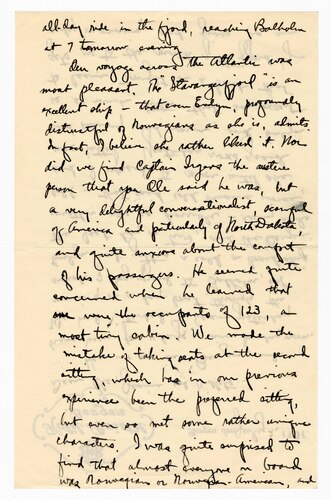 all-day ride in the fjord, reaching Balholm
at 7 tomorrow evening.
Our voyage across the Atlantic was
most pleasant. The "Stavangerfjord" is an
excellent ship – that even Evelyn, profoundly
distrustful of Norwegians as she is, admits.
In fact, I believe she rather liked it. Nor
did we find Captain Irgens the austere
person that you Ole said he was, but
a very delightful conversationalist,
of America and particularly of North Dakota,
and quite anxious about the comfort
of his passengers. He seemed quite
concerned when he learned that
we were the occupants of 123, a
most tiny cabin. We made the
mistake of taking seats at the second
sitting, which has in our previous
experience been the preferred sitting,
but even so met some rather unique
characters. I was quite surprised to
find that almost everyone on board
was Norwegian or Norwegian-American, and